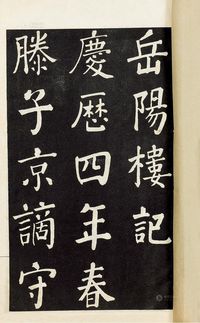 岳陽樓記
慶歷四年春
滕子京謫守